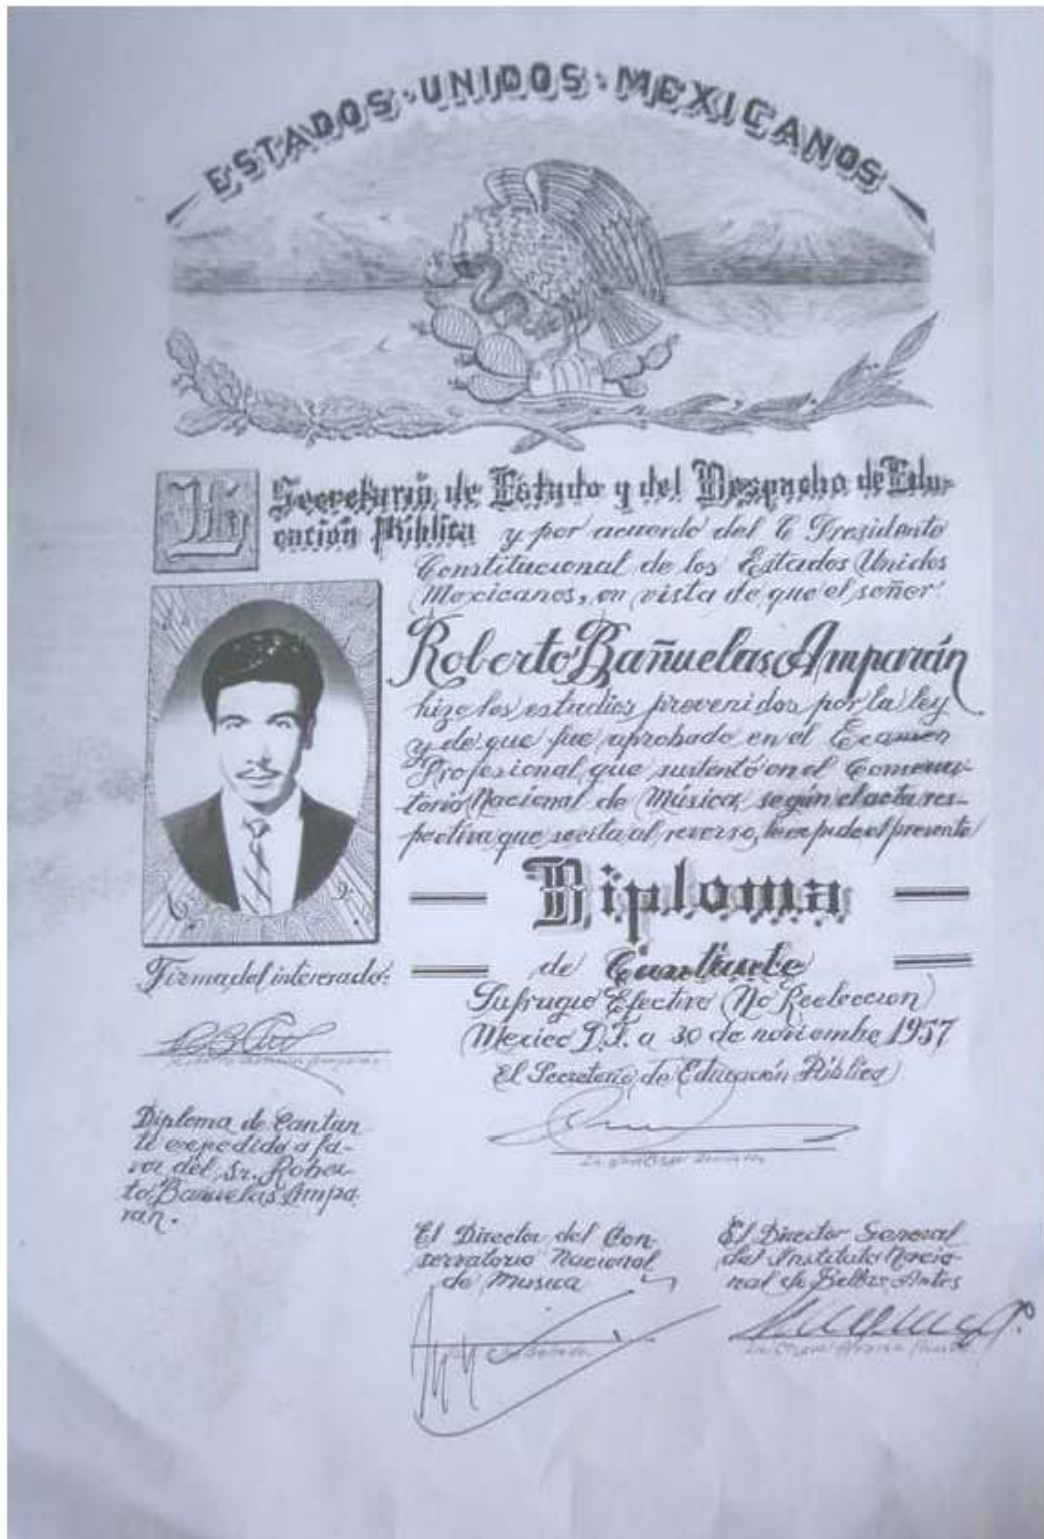 ESTADOS·UNIDOS·MEXICANOS
El
Secretario de Estado y del Despacho de Edu-
cación Pública y por acuerdo del C Presidente
Constitucional de los Estados Unidos
Mexicanos, en vista de que el señor
Roberto Bañuelas Amparán
hizo los estudios prevenidos por la ley
y de que fue aprobado en el Examen
Profesional que sustentó en el Conserva-
torio Nacional de Música, según el acta res-
pectiva que se cita al reverso, le expide el presente
Diploma
de Cantante
Sufragio Efectivo (No Reeleccion)
Mexico D.F. a 30 de noviembre 1957
El Secretario de Educación Pública
Firma del interesado:
Diploma de Cantan
te expedido a fa-
vor del Sr. Rober-
to Bañuelas Ampa-
rán.
El Director del Con-
servatorio Nacional
de Musica
El Director General
del Instituto Nacio-
nal de Bellas Artes